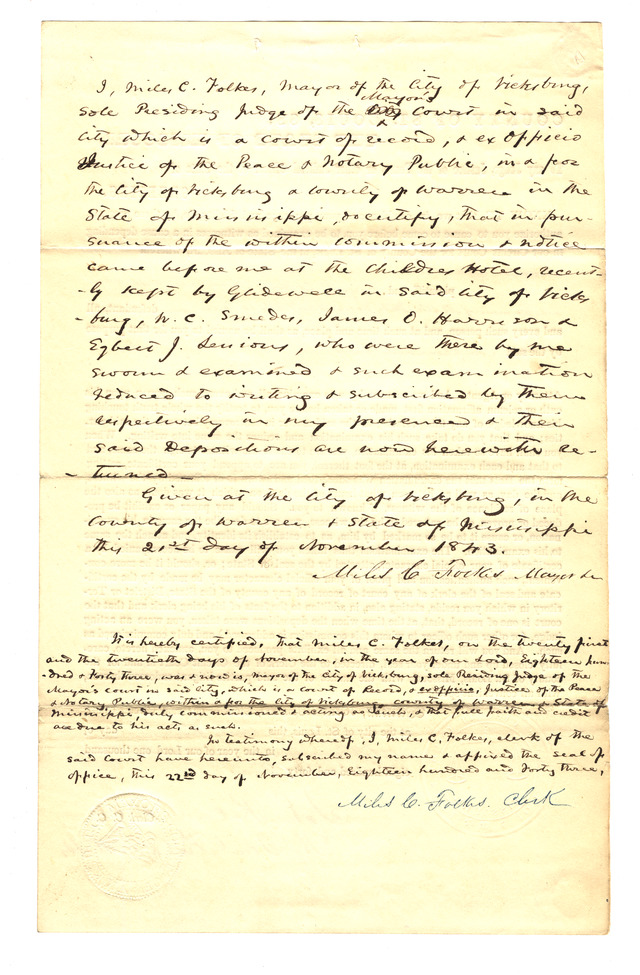 I, Miles C. Folkes, Mayor of the City of Vicksburg,
Mayor's
sole Presiding Judge of the Court in said
City which is a court of record, & ex Officio
Justice of the Peace & Notary Public, in & for
the City of Vicksburg & County of Warren in the
State of Mississippi, do certify, that in pur-
suance of the within commission & notice
came before me at the Childres Hotel, recent-
-ly kept by Glidewell in said City of Vicks
-burg, W. C. Smedes, James O. Harrison &
Egbert J. Sessions, who were there by me
sworn & examined & such examination
reduced to writing & subscribed by them
respectively in my presence & their
said Depositions are now herewith re-
-turned-
Given at the City of Vicksburg, in the
County of Warren & State of Mississippi
this 21st day of November 1843.
Miles C Folkes Mayor
It is hereby certified, that Miles C. Folkes, on the twenty first
and the twentieth days of November, in the year of our Lord, Eighteen hun-
dred & Forty three, was & now is, mayor of the City of Vicksburg, sole Presiding Judge of the
Mayor's Court in said City, which is a court of Record, & ex officio, Justice of the Peace
& Notary Public, within & for the City of Vicksburg, county of Warren & State of
Mississippi, duly commissioned & acting as such, & that full faith and credit
are due to his acts as such.
In testimony whereof, I, Miles C. Folkes, clerk of the
said Court have hereunto, subscribed my name & affixed the seal of
office, this 22nd day of November, Eighteen hundred and Forty three,
Miles C. Folkes. Clerk